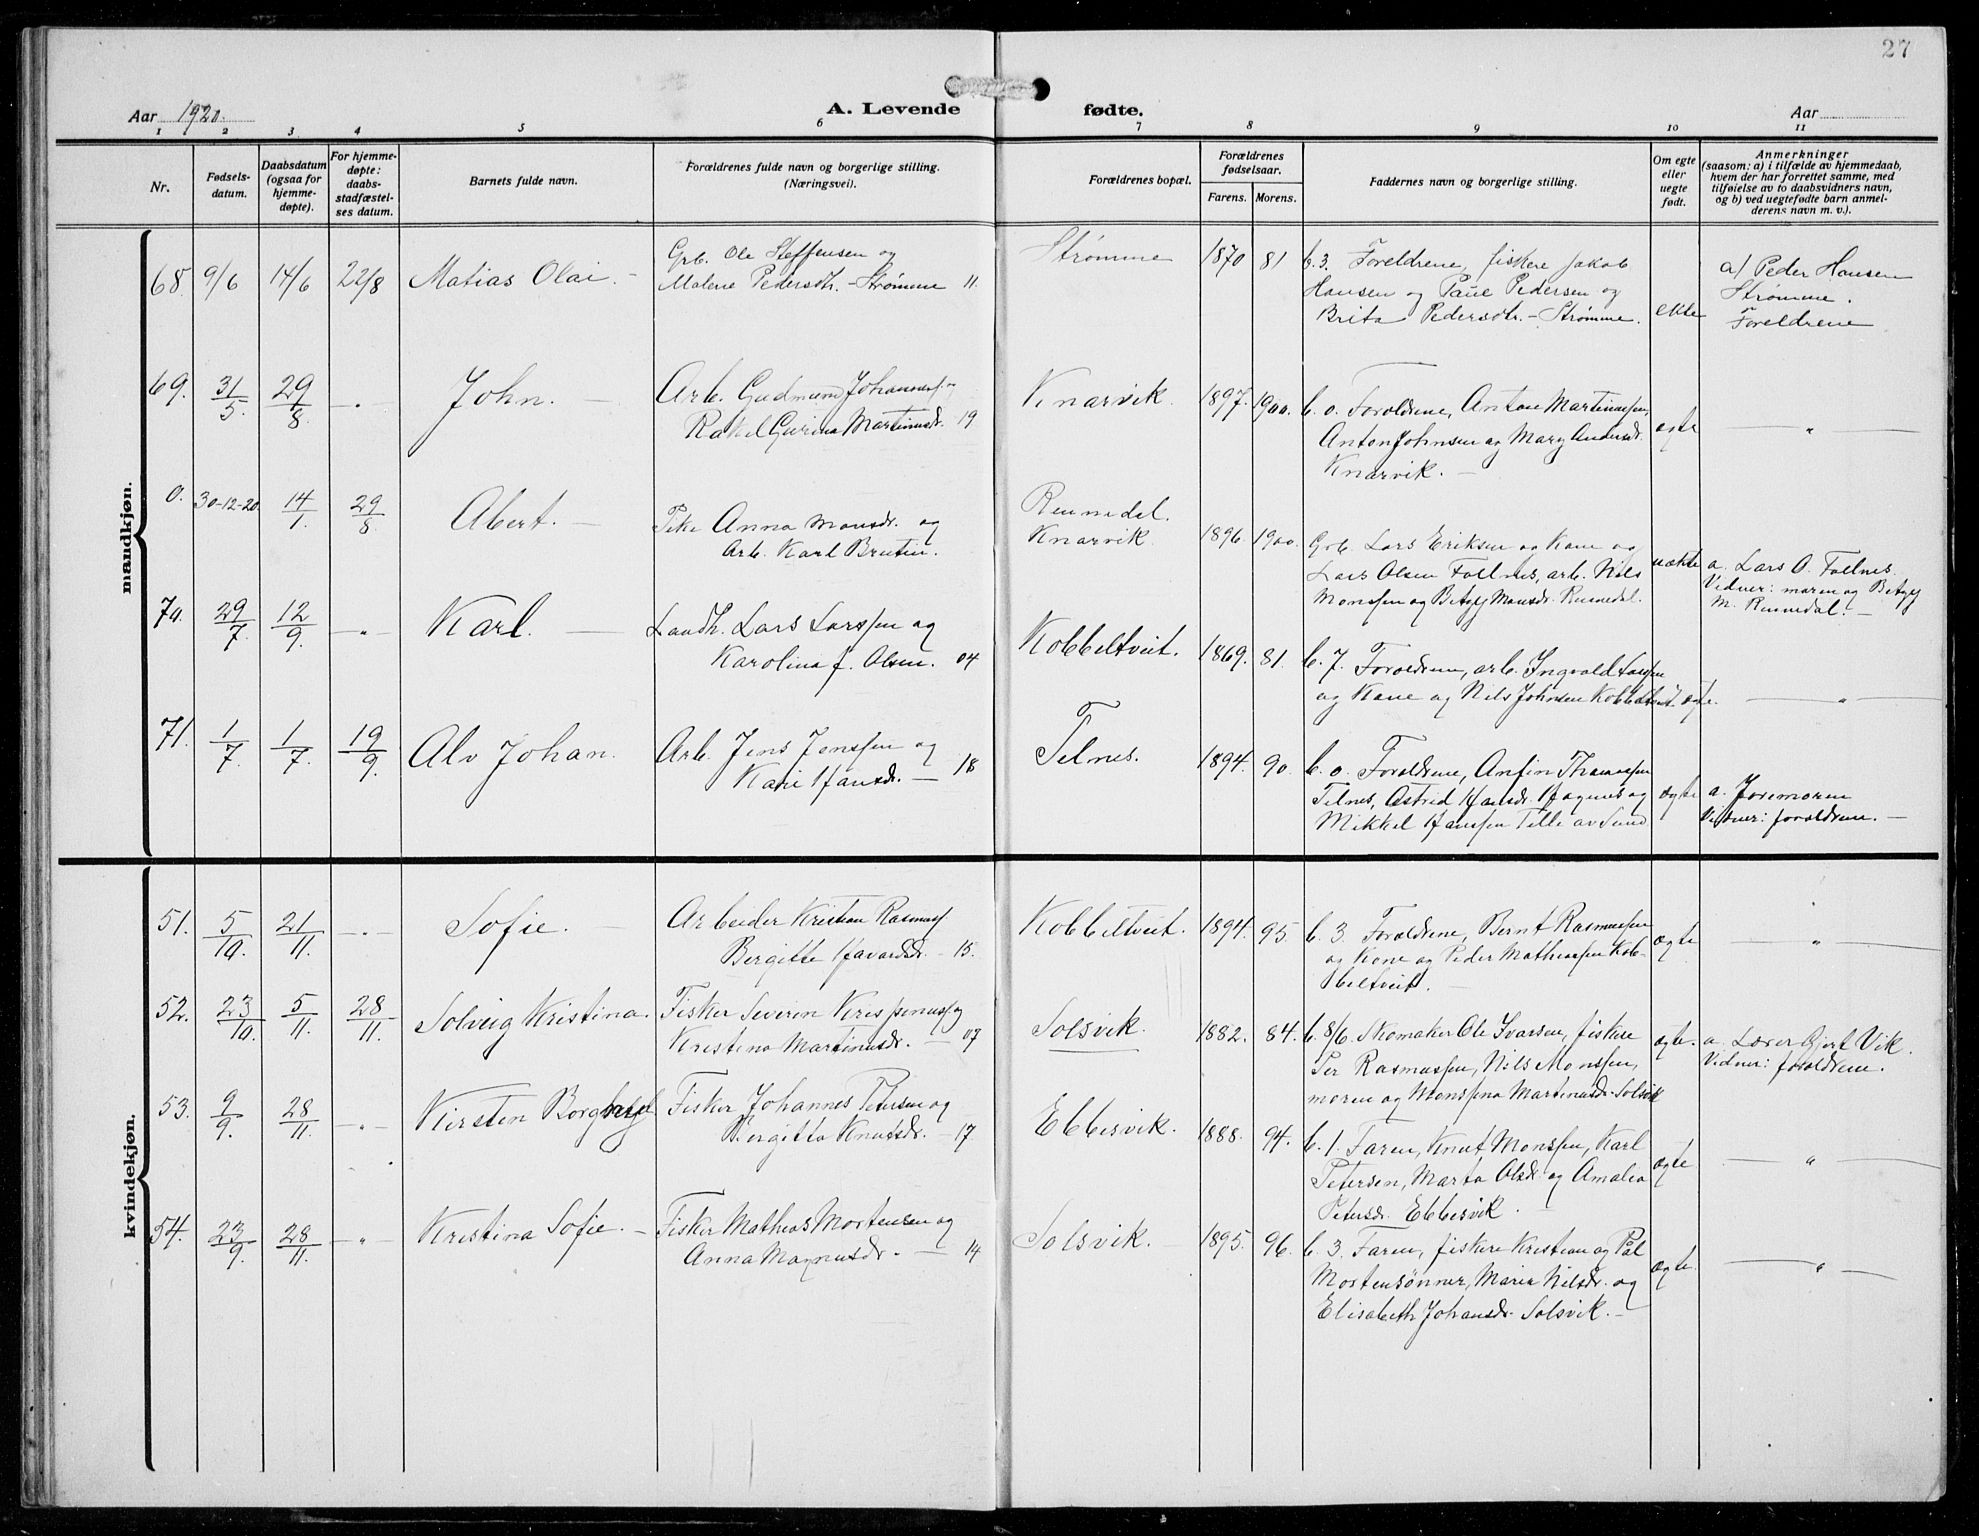 27
Aar 1920.
A. Levende fødte.
Aar
1 2 3 4 5 6 7 8 9 10 11
Nr.
Fødsels-
datum.
Daabsdatum
(ogsaa for
hjemme-
døpte).
For hjemme-
døpte:
daabs-
stadfæstel-
ses datum.
Barnets fulde navn.
Forældrenes fulde navn og borgerlige stilling.
(Næringsvei).
Forældrenes bopæl.
Forældrenes
fødselsaar.
Farens. Morens.
Faddernes navn og borgerlige stilling.
Om egte
eller
uegte
født.
Anmerkninger
(saasom: a) i tilfælde av hjemmedaab,
hvem der har forrettet samme, med
tilføielse av to daabsvidners navn,
og b) ved uegtefødte barn anmel-
derens navn m. v.).
mandkjøn.
68. 9/6 14/6 22/8 Matias Olai -
Grb. Ole Steffensen og
Malene Pedersdtr. - Strømme 11.
Strømme 1870 81
b. 3. Foreldrene, fiskere Jakob
Hansen og Paul Pedersen og
Brita Pedersdtr. - Strømme.
ekte
a/ Peder Hansen
Strømme.
Foreldrene
69. 31/5. 29/8. - " - John. -
Arb. Gudmund Johanness. og
Rakel Gurina Martinusdr. 19
Knarvik. 1897. 1900.
b. 0. Foreldrene, Anton Martinussen,
Anton Johnsen og Mary Andersdr.
Knarvik. -
egte
- " -
0. 30-12-20 14/1. 29/8. Abert. -
Pike Anna Monsdr. og
Arb. Karl Brutin.
Rennedal.
Knarvik. 1896. 1900.
Grb. Lars Eriksen og Kone og
Lars Olsen Follnes, arb. Nils
Monssen og Betzy Monsdr. Rennedal.
uekte
a. Lars O. Follnes.
Vidner: moren og Betzy
M. Rennedal. -
70. 29/7. 12/9. - " - Karl. -
Landh. Lars Larssen og
Karolina J. Olsen. 04
Kobbeltveit. 1869. 81.
b. 7. Foreldrene, arb. Ingvald Larssen
og Kone og Nils Johnsen Kobbeltveit.
egte.
- " -
71. 1/7. 1/7. 19/9. Alv Johan.
Arb. Jens Jenssen og
Kari Hansdr. - 18
Telnes. 1894. 90.
b. 0. Foreldrene, Anfin Thomassen
Telnes, Astrid Hansdr. Hagenes og
Mikkel Hanssen Telle av Sund
egte
a. Jormoren
Vidner: foreldrene. -
kvindekjøn.
51. 5/10. 21/11. - " - Sofie. -
Arbeider Kristian Rasmuss
Bergitte Havardsdr. - 15.
Kobbeltveit. 1894. 95.
b. 3. Foreldrene, Bernt Rasmussen
og Kone og Peder Mathiassen Kob-
beltveit. -
egte
- " -
52. 23/10. 5/11. 28/11. Solveig Kristina.
Fisker Severin Krispinuss og
Kristina Martinusdr. - 07
Solsvik. 1882. 84.
b. 8/6. Skomaker Ole Ivarsen, fiskere
Per Rasmussen, Nils Monssen,
moren og Monssina Martinusdr. Solsvik
egte.
a. Lærer Gjert Vik.
Vidner: foreldrene.
53. 9/9. 28/11. - " - Kirsten Borghild
Fisker Johannes Petersen og
Bergitta Knutsdr. - 17
Ebbesvik. 1888. 94.
b. 1. Faren, Knut Monssen, Karl
Petersen, Marta Olsdr. og Amalia
Petersdr. Ebbesvik.
egte
- " -
54. 23/9. 28/11. - " - Kristina Sofie. -
Fisker Mathias Mortensen og
Anna Magnusdr. - 14
Solsvik. 1895. 96.
b. 3. Faren, fiskere Kristian og Pål
Mortensønner, Marie Nilsdr. og
Elisabeth Johansdr. Solsvik. -
egte.
- " -